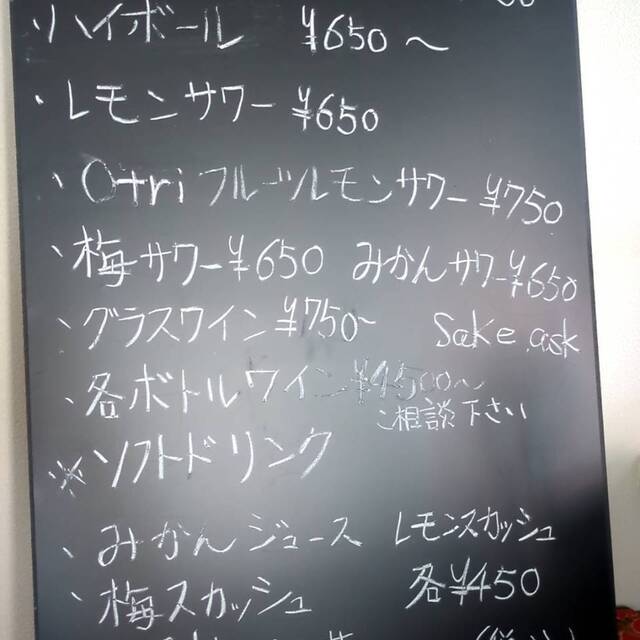 ハイボール ¥650〜
・レモンサワー ¥650
・Otriフルーツレモンサワー ¥750
・梅サワー ¥650 みかんサワー ¥650
・グラスワイン ¥750〜 Sake ask
・各ボトルワイン ¥4500〜
ご相談下さい
※ソフトドリンク
・みかんジュース レモンスカッシュ
・梅スカッシュ 各¥450